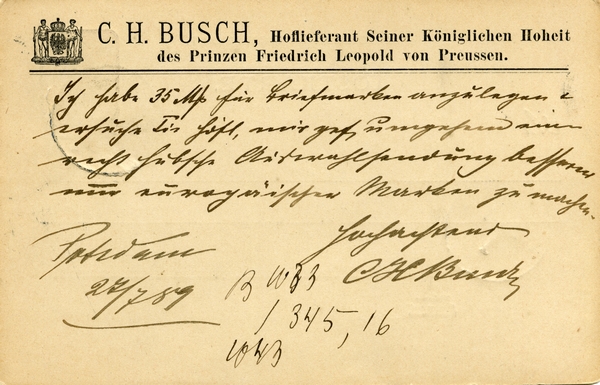 C. H. BUSCH, Hoflieferant Seiner Königlichen Hoheit
des Prinzen Friedrich Leopold von Preussen.
Ich habe 35 Mk für Briefmarken anzulegen &
ersuche Sie höfl, mir gef. umgehend eine
recht hübsche Auswahlsendung besserer
nur europäischer Marken zu machen.
Hochachtend
Potsdam
CHBusch
27/7 89
B W33
1345,16
W43